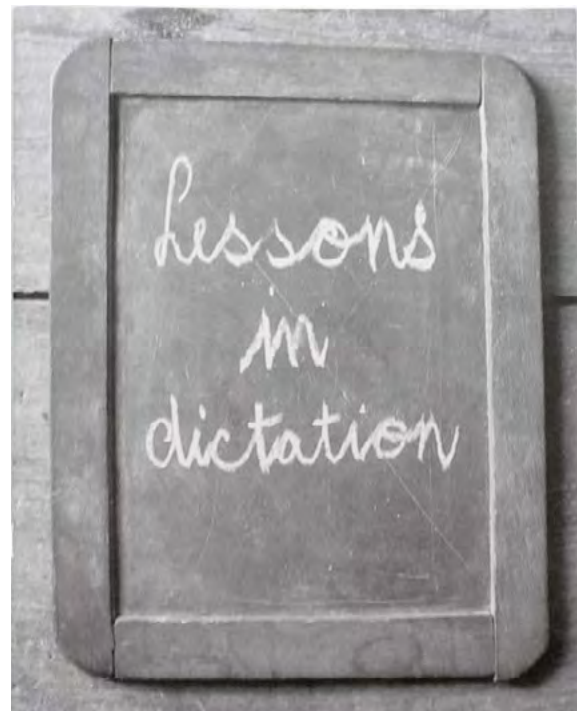 Lessons
in
dictation